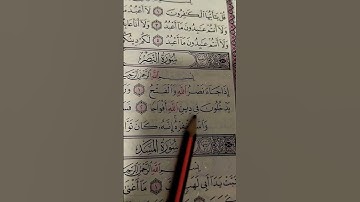 قُلْ يَٰٓأَيُّهَا ٱلْكَٰفِرُونَ ١ لَآ أَعْبُدُ
وَلَآ أَنتُمْ عَٰبِدُونَ مَآ أَعْبُدُ ٣ وَلَآ
وَلَآ أَنتُمْ عَٰبِدُونَ مَآ أَعْبُدُ ٥ لَكُمْ دِي
سُورَةُ ٱلنَّصْرِ
بِسْمِ ٱللَّهِ ٱلرَّحْمَٰنِ ٱلرَّ
إِذَا جَآءَ نَصْرُ ٱللَّهِ وَٱلْفَتْحُ ١
يَدْخُلُونَ فِى دِينِ ٱللَّهِ أَفْوَاجًا ٢ فَسَ
إِنَّهُۥ كَانَ تَوَّا
سُورَةُ ٱلْمَسَدِ
ٱللَّهِ ٱلرَّحْمَٰنِ ٱلرَّ
تَبَّتْ يَدَآ أَبِى لَهَبٍ ١ مَآ أَغْنَىٰ